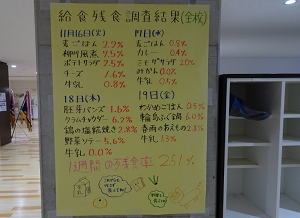 給食残食調査結果(全校)
11月16日(火)
麦ごはん 2.9%
柳川風煮 9.5%
ポテトサラダ 7.5%
チーズ 1.6%
牛乳 0.8%
17日(水)
麦ごはん 0.8%
カレー 0.4%
ミモザサラダ 2.0%
みかん 0.0%
牛乳 0.5%
18日(木)
胚芽パンズ 1.6%
クラムチャウダー 6.2%
鶏の塩糀焼き 2.8%
野菜ソテー 5.6%
牛乳 0.0%
19日(金)
わかめごはん 0.5%
輪島ふぐ鍋 6.0%
春雨のあえもの 2.8%
牛乳 1.3%
1週間の残食率 2.51%